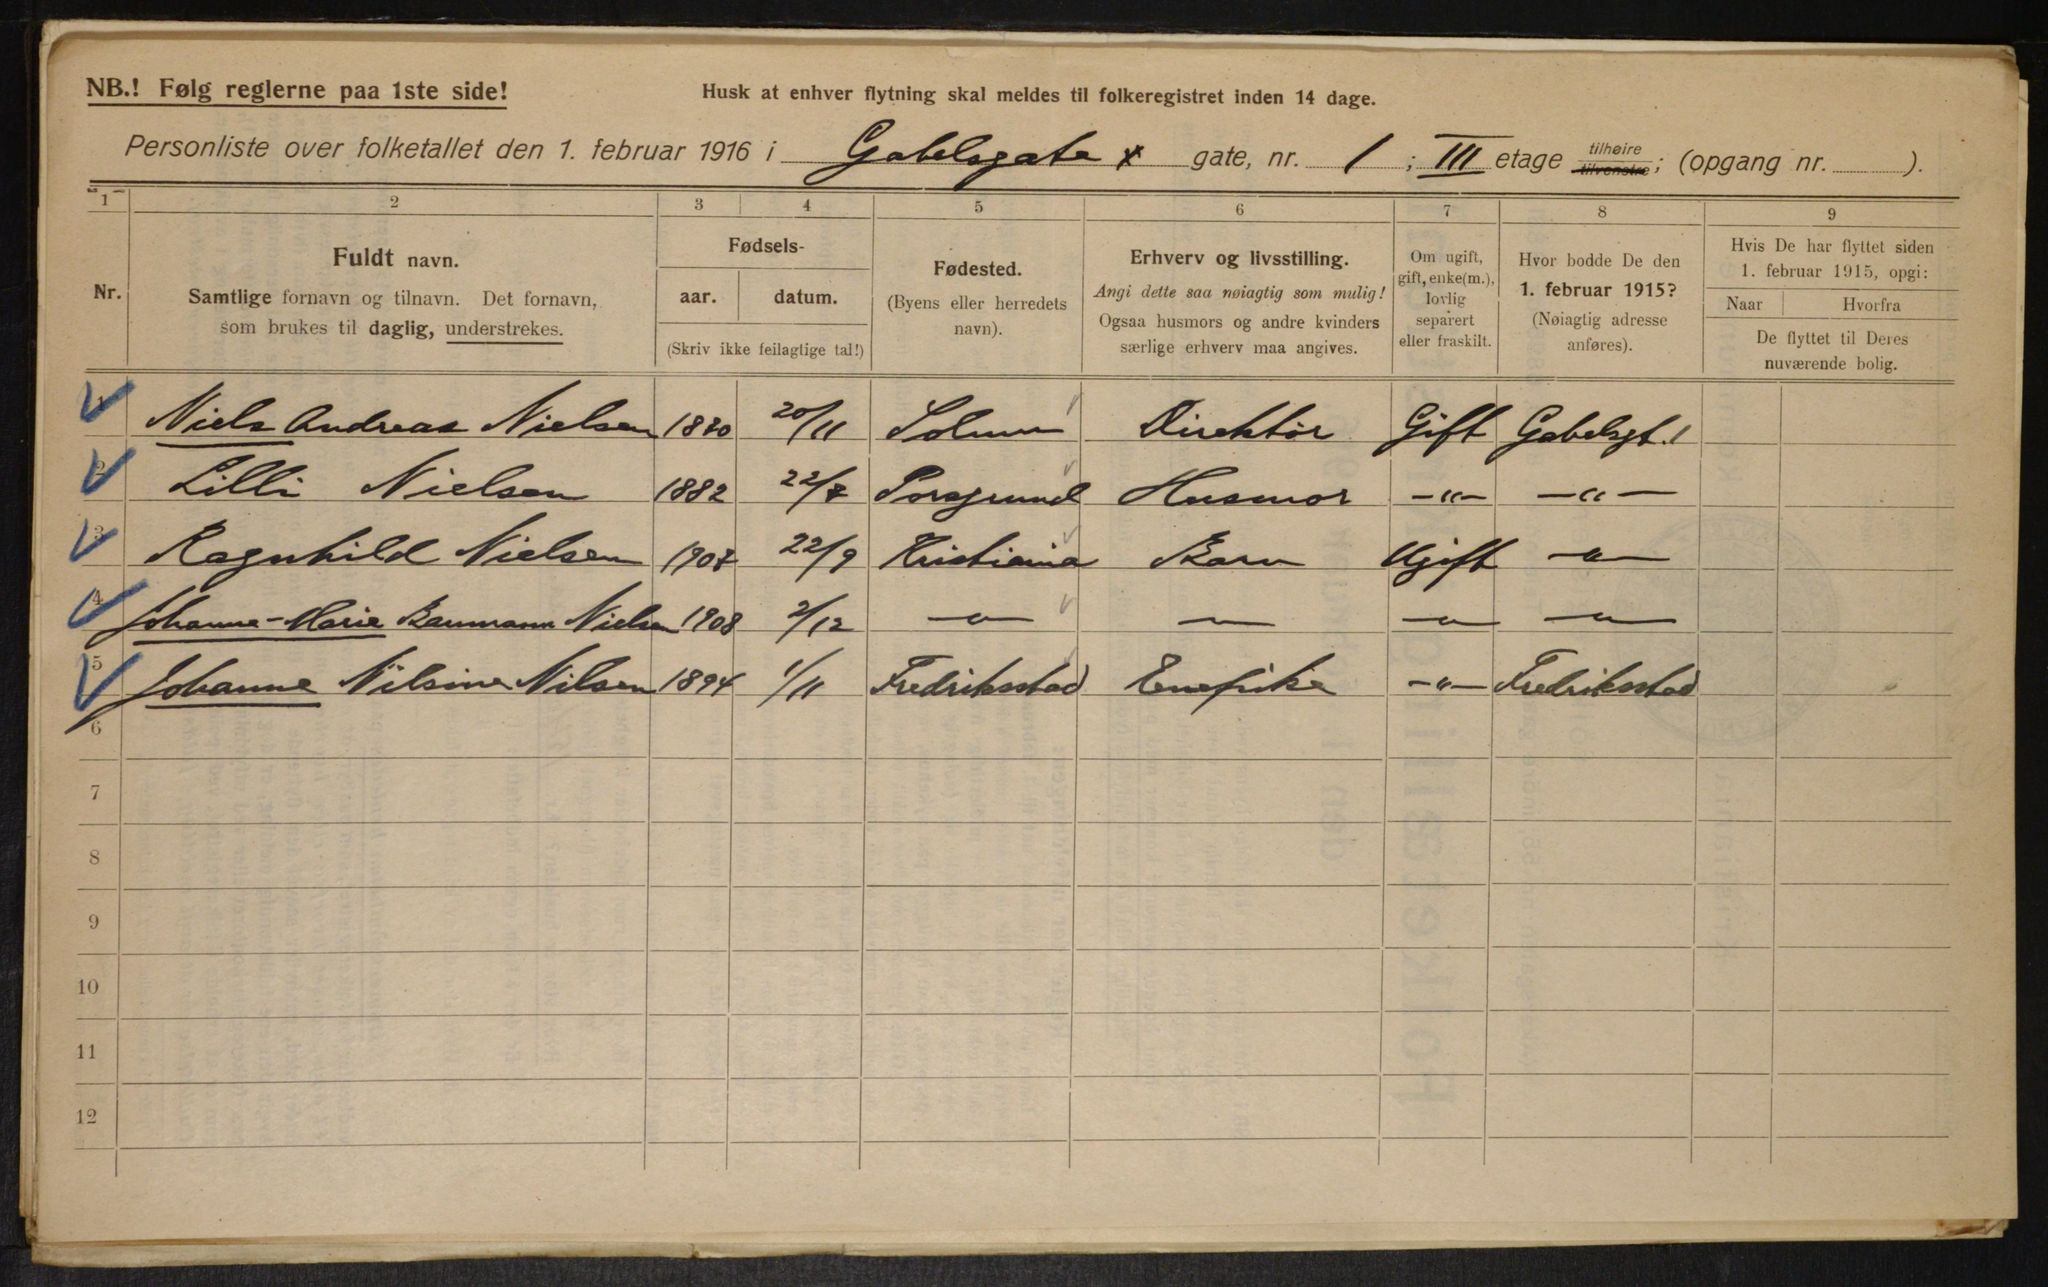 NB.! Følg reglerne paa 1ste side!
Husk at enhver flytning skal meldes til folkeregistret inden 14 dage.
Personliste over folketallet den 1. februar 1916 i Gabelsgate x gate, nr. 1 ; III etage tilhøire tilvenstre; (opgang nr. ).
1 2 3 4 5 6 7 8 9
Nr.
Fuldt navn.
Samtlige fornavn og tilnavn. Det fornavn,
som brukes til daglig, understrekes.
Fødsels-
aar. datum.
(Skriv ikke feilagtige tal!)
Fødested.
(Byens eller herredets
navn).
Erhverv og livsstilling.
Angi dette saa nøiagtig som mulig!
Ogsaa husmors og andre kvinders
særlige erhverv maa angives.
Om ugift,
gift, enke(m.),
lovlig
separert
eller fraskilt.
Hvor bodde De den
1. februar 1915?
(Nøiagtig adresse
anføres).
Hvis De har flyttet siden
1. februar 1915, opgi:
Naar Hvorfra
De flyttet til Deres
nuværende bolig.
1 Niels Andreas Nielsen 1870 20/11 Solum Direktør Gift Gabelsgt. 1
2 Lilli Nielsen 1882 22/7 Porsgrund Husmor -"- -"-
3 Ragnhild Nielsen 1907 22/9 Kristiania Barn Ugift -"-
4 Johanne-Marie Baumann Nielsen 1908 2/12 -"- -"- -"- -"-
5 Johanne Nilsine Nilsen 1894 1/11 Fredriksstad Enepike -"- Fredriksstad
6
7
8
9
10
11
12